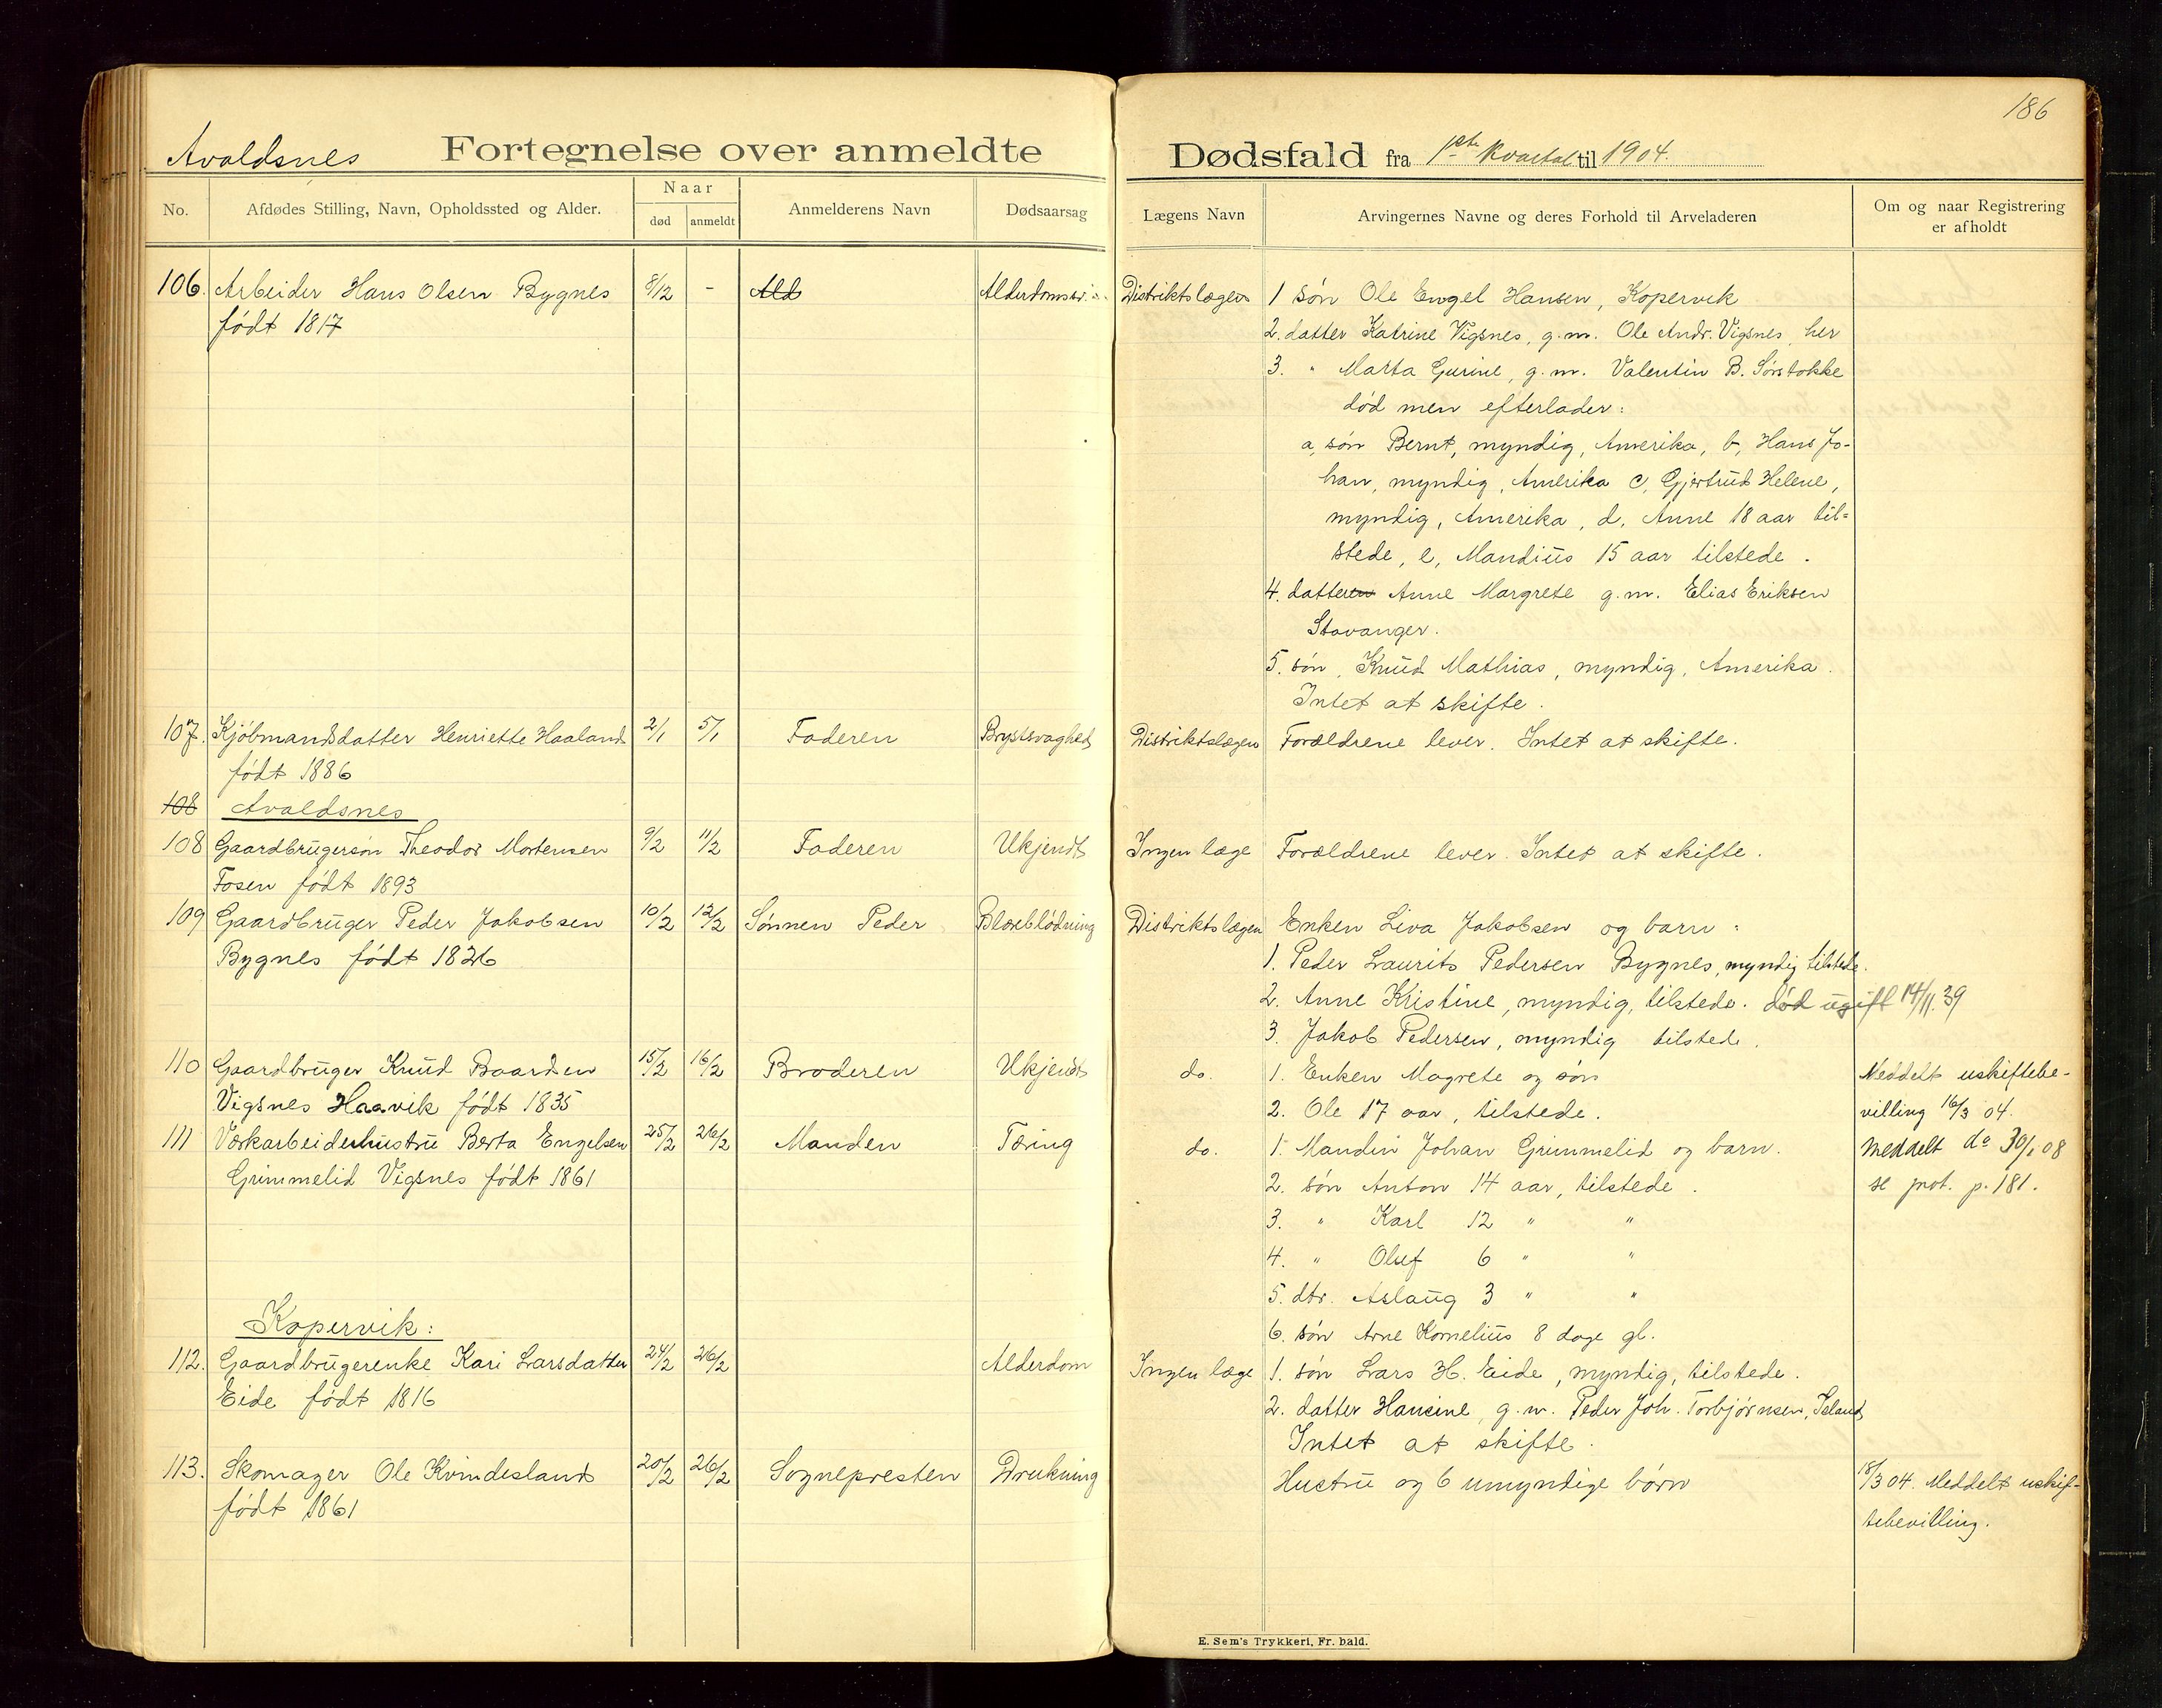 186
Avaldsnes Fortegnelse over anmeldte Dødsfald fra 1ste kvartal til 1904.
No.
Afdødes Stilling, Navn, Opholdssted og Alder.
Naar
død
anmeldt
Anmelderens Navn
Dødsaarsag
Lægens Navn
Arvingernes Navne og deres Forhold til Arveladeren
Om og naar Registrering
er afholdt
106. Arbeider Hans Olsen Bygnes 8/12 - Ald Distriktslægen 1 søn Ole Engel Hansen, Kopervik
født 1817 2. datter Katrine Vigsnes, g.m. Ole Andr. Vigsnes, her
3. " Marta Gurine, g.m. Valentin B. Sørstokke
død men efterlader:
a, søn Bernt, myndig, Amerika, b, Hans Jo-
han, myndig, Amerika c, Gjertrud Helene,
myndig, Amerika, d, Anne 18 aar til=
stede, e, Mandius 15 aar tilstede.
4. datteren Anne Margrete g.m. Elias Eriksen
Stavanger.
5. søn, Knud Mathias, myndig, Amerika.
Intet at skifte.
107. Kjøbmandsdatter Henriette Haaland 2/1 5/1 Faderen Brystsvaghed Distriktslægen Forældrene lever. Intet at skifte.
født 1886
108 Avaldsnes
108 Gaardbrugersøn Theodor Mortensen 9/2 11/2 Faderen Ukjendt Ingen læge Forældrene lever. Intet at skifte.
Fosen født 1893
109 Gaardbruger Peder Jakobsen 10/2 12/2 Sønnen Peder Blæreblødning Distriktslægen Enken Liva Jakobsen og barn:
Bygnes født 1826 1. Peder Laurits Pedersen Bygnes, myndig tilstede.
2. Anne Kristine, myndig, tilstede. død ugift 14/11.39
3. Jakob Pedersen, myndig tilstede.
110 Gaardbruger Knud Baardsen 15/2 16/2 Broderen Ukjendt do. 1. Enken Magrete og søn Meddelt uskiftebe-
Vigsnes Haavik født 1835 2. Ole 17 aar, tilstede. villing 16/3 04.
111 Værkarbeiderhustru Berta Engelsen 25/2 26/2 Manden Tæring do. 1. Manden Johan Grimmelid og barn. Meddelt do 30/1 08
Grimmelid Vigsnes født 1861 2. søn Anton 14 aar, tilstede. se prot. p. 181.
3. " Karl 12 " "
4. " Oluf 6 " "
5. dtr. Aslaug 3 " "
Kopervik:
6. søn Arne Kornelius 8 dage gl.
112. Gaardbrugerenke Kari Larsdatter 24/2 26/2 Alderdom Ingen læge 1. søn Lars H. Eide, myndig, tilstede.
Eide født 1816 2. datter Hansine, g.m. Peder Joh. Torbjørnsen, Island
Intet at skifte.
113. Skomager Ole Kvindesland 20/2 26/2 Sognepresten Drukning Hustru og 6 umyndige børn 18/3 04. Meddelt uskif-
født 1861 tebevilling.
E. Sem's Trykkeri, Fr. hald.